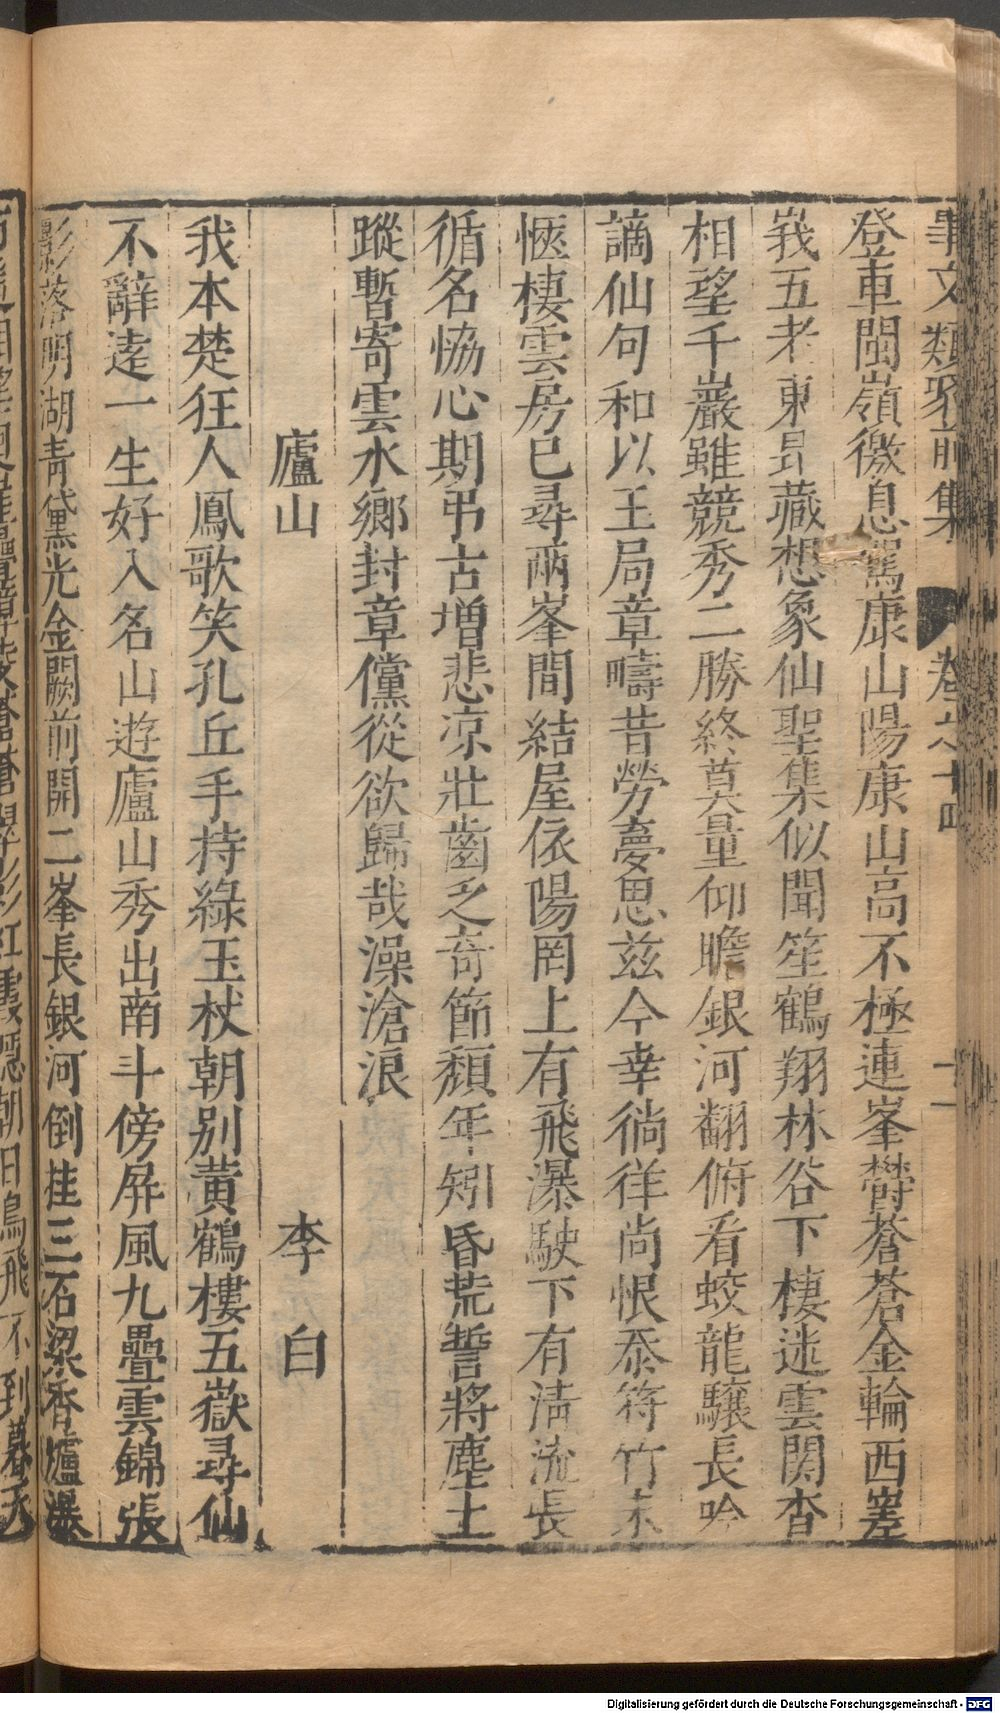 事文類聚前集 卷之十四 十一
登車閩嶺徼息駕康山陽康山高不極連峯欝蒼蒼金輪西嵳
峩五老東昻藏想象仙聖集似聞笙鶴翔林谷下棲迷雲関杳
相望千巖雖競秀二勝終莫量仰瞻銀河翻俯看蛟龍驤長吟
謫仙句和以玉局章疇昔勞夢思兹今幸徜徉尚恨忝符竹未
愜棲雲房已尋兩峯間結屋依陽罔上有飛瀑駛下有淸流長
循名恊心期弔古增悲凉壯齒乏竒節頹年矧昏荒誓將塵土
蹤暫寄雲水鄉封章儻從欲歸哉澡滄浪
廬山 李白
我本楚狂人鳳歌笑孔丘手持綠玉杖朝別黄鶴樓五嶽尋仙
不辭逺一生好入名山遊廬山秀出南斗傍屏風九疊雲錦張
影落明湖靑黛光金闕前開二峯長銀河倒挂三石梁香爐瀑
相望廻崖疊嶂凌蒼蒼翠影紅霞映朝日鳥飛不到